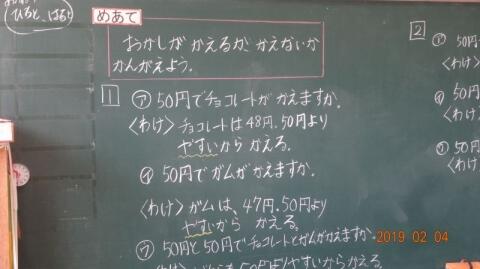 ひると、はると
めあて
おかしが かえるか、かえないか
かんがえよう。
1
㋐ 50円でチョコレートが かえますか。
〈わけ〉チョコレートは48円。50円より
やすいから かえる。
㋑ 50円でガムがかえますか。
〈わけ〉ガムは、47円。50円より
やすいから かえる。
㋒ 50円と50円でチョコレートとガムがかえますか。
50円よりやすいからかえる
2
㋐ 50円
㋑ 50円
〈わけ
2019 02 04